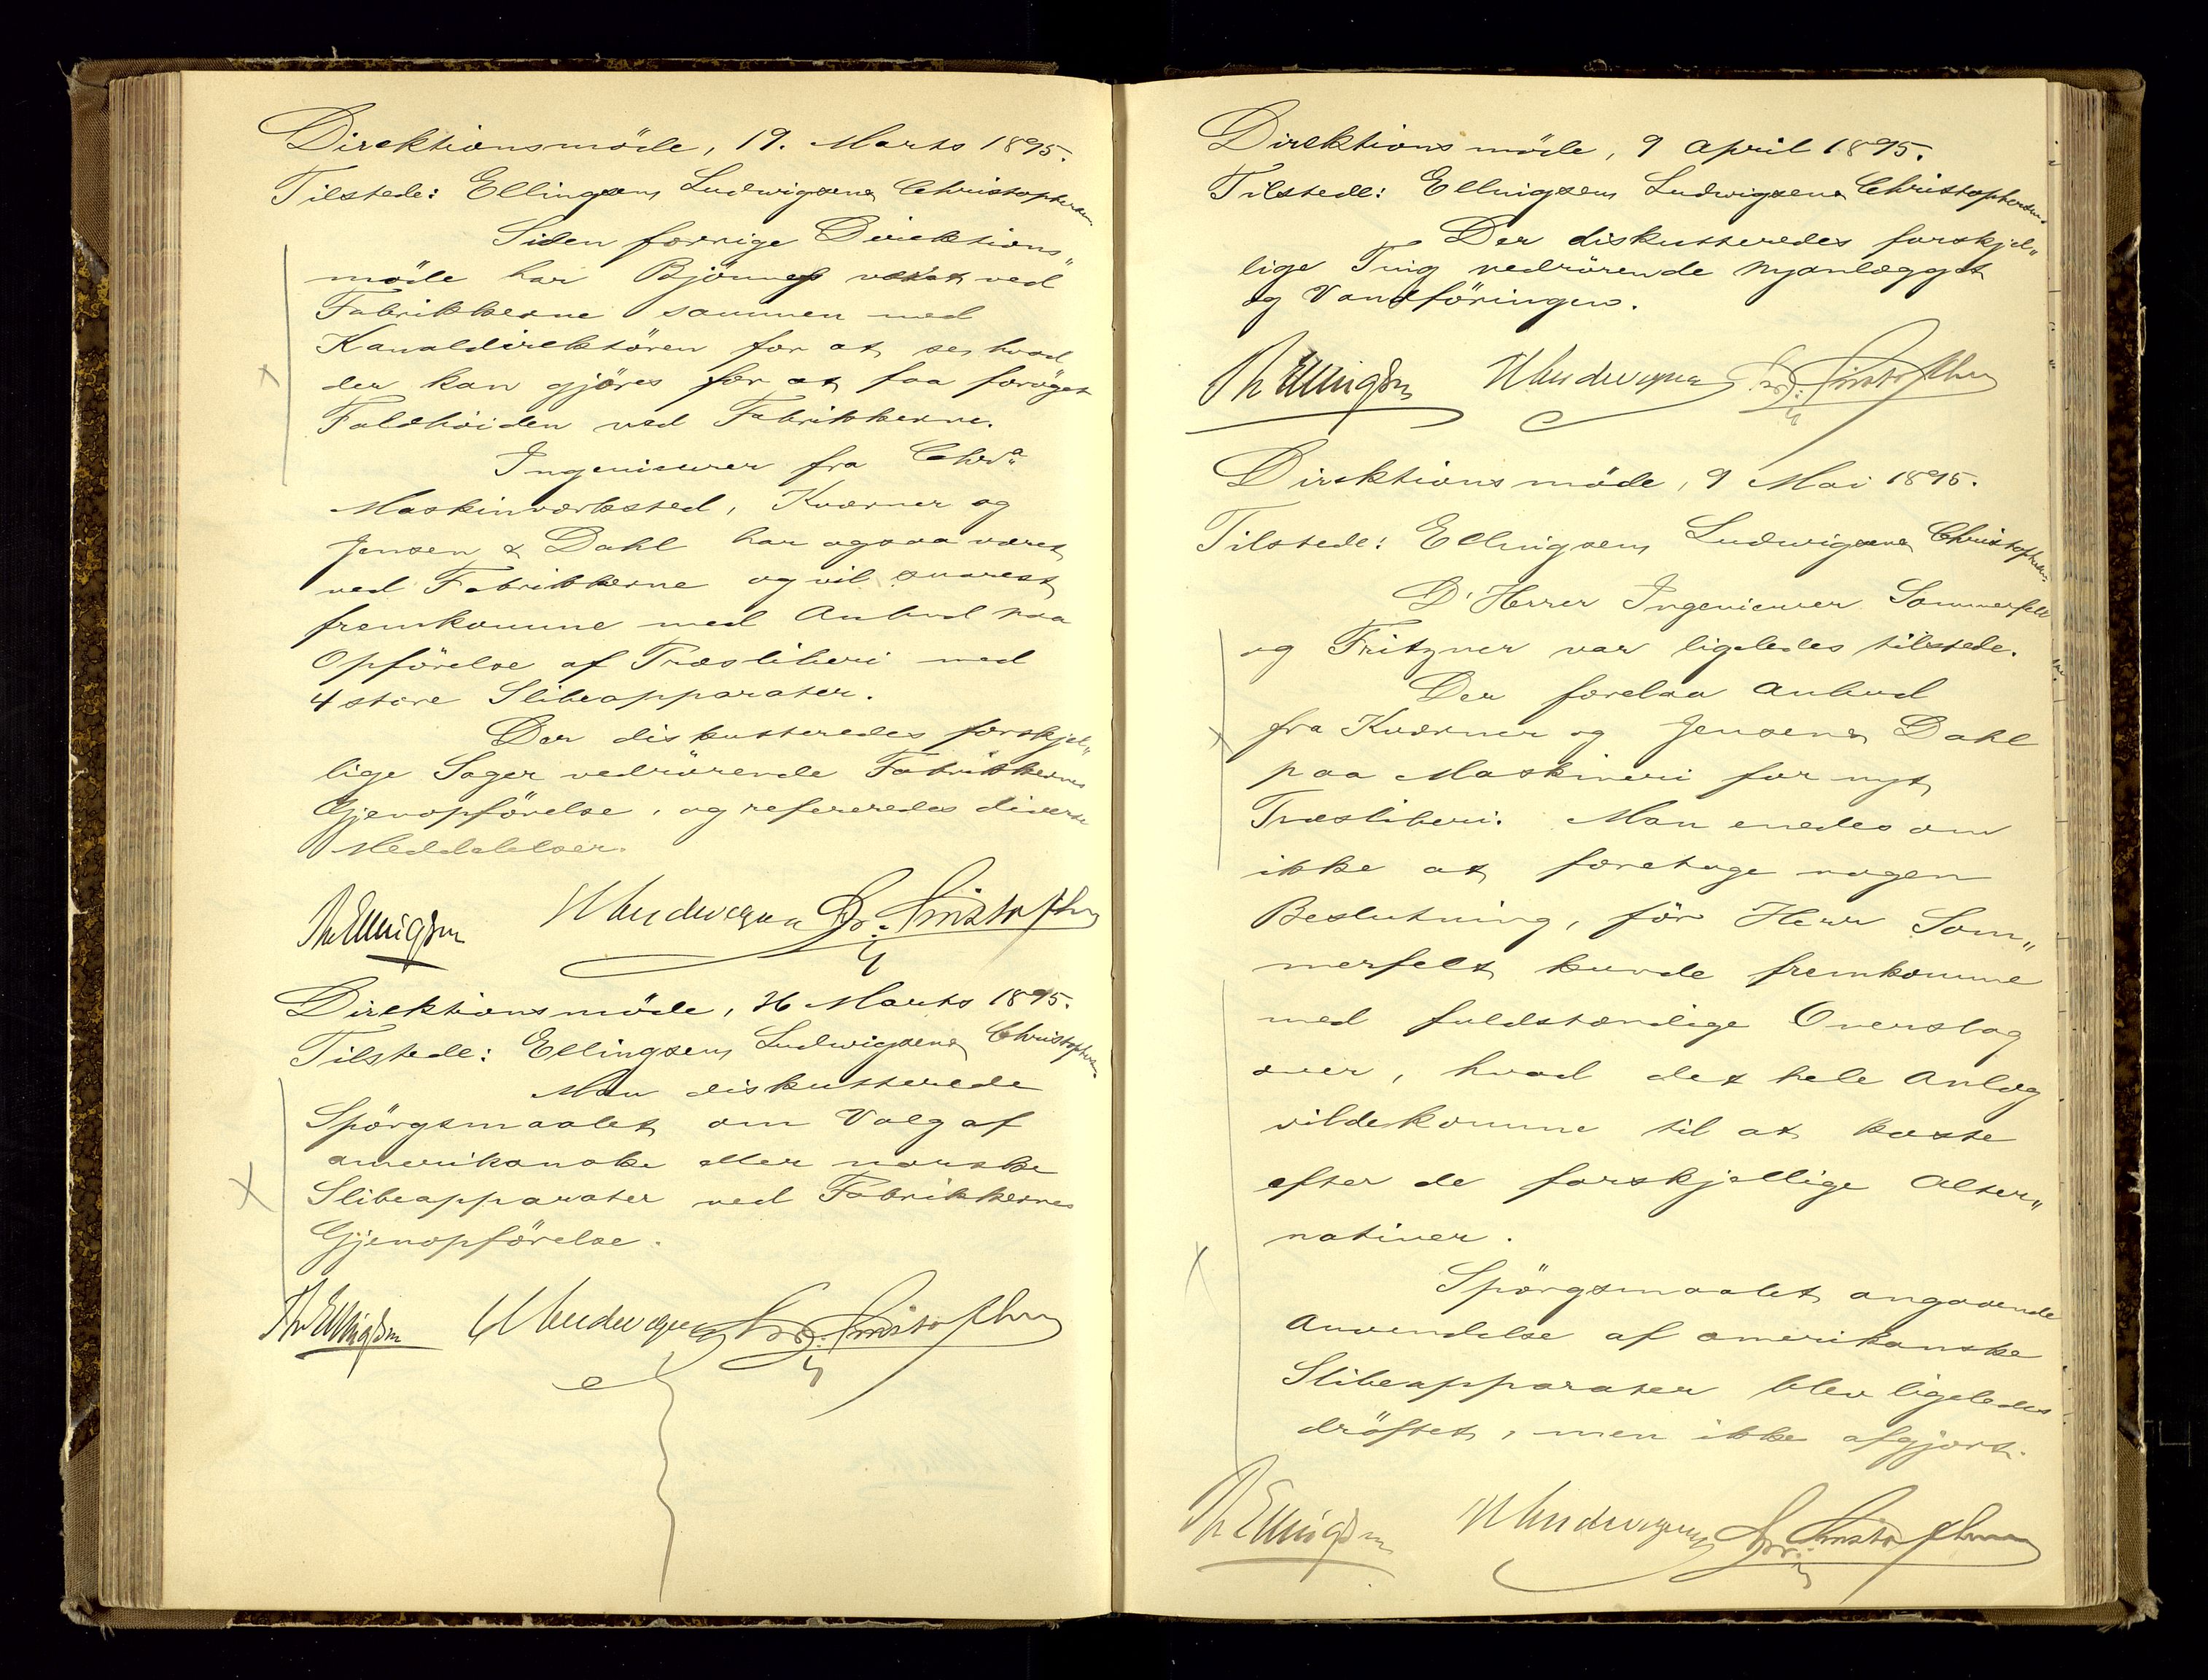 Direktionsmöde, 19. Marts 1895.
Tilstede: Ellingsen, Ludwigsen & Christophersen
Siden forrige Direktions„
möde har Bjönnes været ved
Fabrikkerne sammen med
Kanaldirektören for at se, hvad
der kan gjöres for at faa foröget
Faldhöiden ved Fabrikkerne.
Ingeniører fra Chra
Maskinværksted, Kværner og
Jensen & Dahl har ogsaa været
ved Fabrikkerne og vil snarest
fremkomme med Anbud paa
Opförelse af Træsliberi med
4 store Slibeapparater.
Der diskutteredes forskjel„
lige Sager vedrörende Fabrikkernes
Gjenopförelse, og refereredes diverse
Meddelelser.
Th Ellingsen W Ludwigsen Chr. Christophersen
Direktionsmöde, 26 Marts 1895.
Tilstede: Ellingsen, Ludwigsen & Christophersen
Man diskutterede
Spörgsmaalet om Valg af
amerikanske eller norske
Slibeapparater ved Fabrikkernes
Gjenopförelse.
Th Ellingsen W Ludwigsen Chr. Christophersen
Direktionsmöde, 9 April 1895.
Tilstede: Ellingsen, Ludwigsen & Christophersen
Der diskutteredes forskjel„
lige Ting vedrörende Nyanlægget
og Vandföringen.
Th Ellingsen W Ludwigsen Chr. Christophersen
Direktionsmöde, 9 Mai 1895.
Tilstede: Ellingsen, Ludwigsen & Christophersen
D'Herrer Ingeniører Sommerfelt
og Fritzner var ligeledes tilstede.
Der forelaa Anbud
fra Kværner og Jensen & Dahl
paa Maskineri for nyt
Træsliberi. Man enedes om
ikke at foretage nogen
Beslutning, för Herr Som„
merfelt kunde fremkomme
med fuldstændige Overslag
over, hvad det hele Anlæg
vilde komme til at koste
efter de forskjellige Alter„
nativer.
Spörgsmaalet angaaende
Anvendelse af amerikanske
Slibeapparater blev ligeledes
dröftet, men ikke afgjort.
Th Ellingsen W Ludwigsen Chr. Christophersen